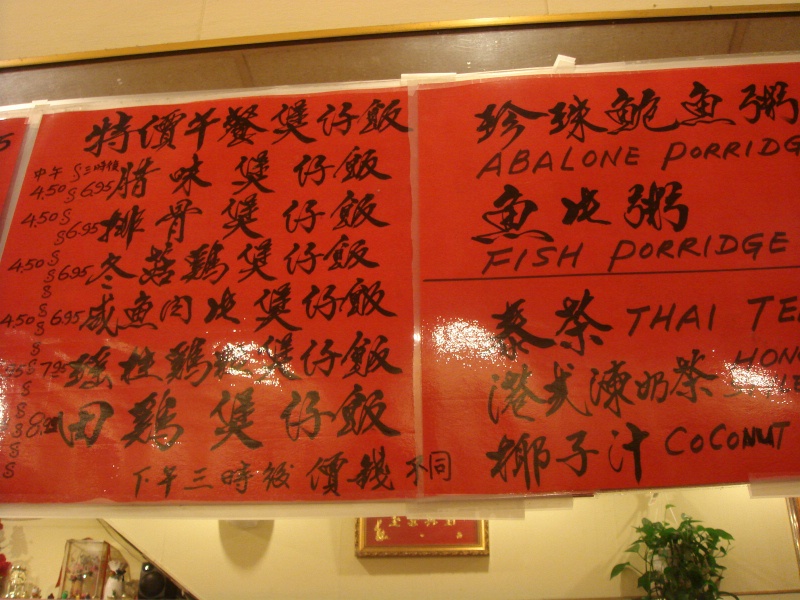 特價午餐煲仔飯
中午 § 三時後
4.50 § 6.95 腊味煲仔飯
4.50 § 6.95 排骨煲仔飯
4.50 § 6.95 冬菇鶏煲仔飯
4.50 § 6.95 咸魚肉片煲仔飯
7.95 瑤柱鶏 煲仔飯
田鶏煲仔飯
下午三時後 價錢不同
珍珠鮑魚粥
ABALONE PORRIDG
魚片粥
FISH PORRIDGE
泰茶 THAI TE
港式凍奶茶 HON
椰子汁 COCONUT